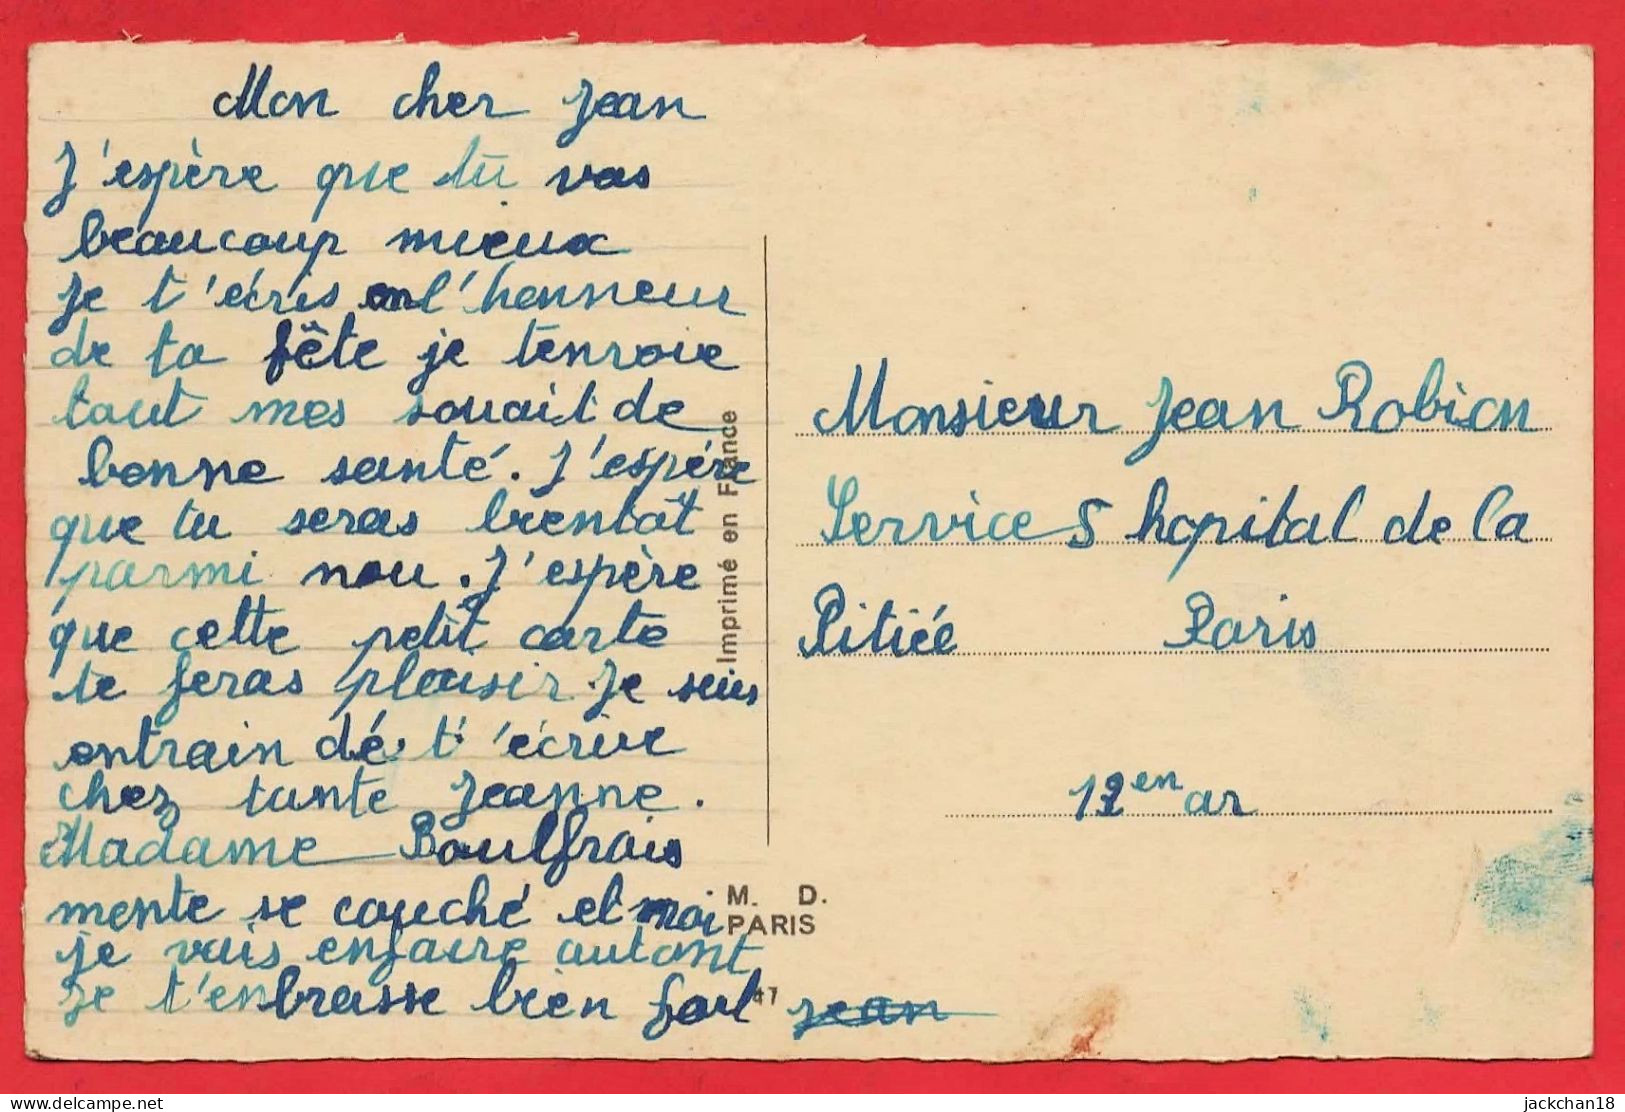 Mon cher Jean
J'espère que tu vas
beaucoup mieux
Je t'écris en l'honneur
de ta fête je t'enroie
tout mes souait de
bonne santé. J'espère
que tu seras bientôt
parmi nou. J'espère
que cette petit carte
te feras plaisir. Je suis
entrain dé t'écrive
chez tante Jeanne.
Madame Boulfrais
mente se couché et moi
je vais enfaire autant
Je t'enbrasse bien fort Jean
Imprimé en France
M. D.
PARIS
47
Monsieur Jean Robion
Service 5 hopital de la
Pitiée Paris
12en ar
jackchan18